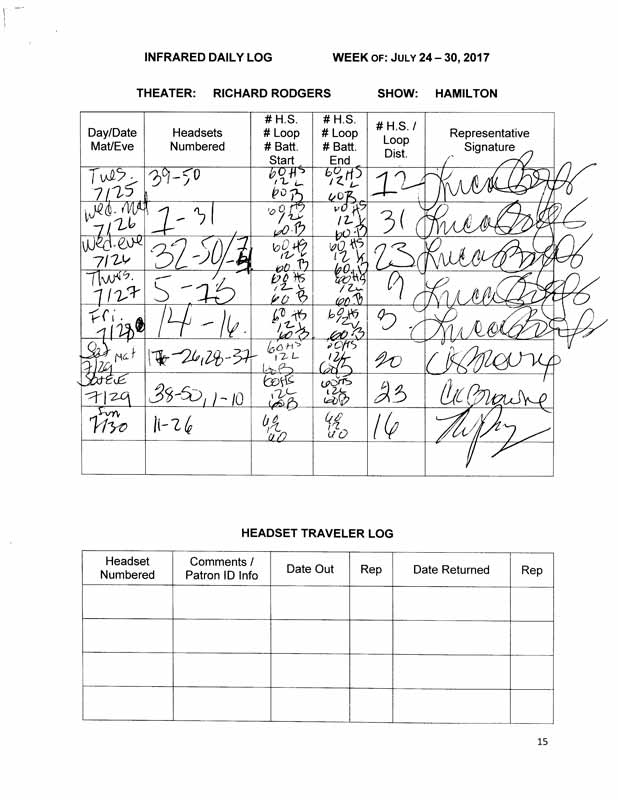 INFRARED DAILY LOG WEEK OF: JULY 24 – 30, 2017
THEATER: RICHARD RODGERS SHOW: HAMILTON
Day/Date
Mat/Eve
Headsets
Numbered
# H.S.
# Loop
# Batt.
Start
# H.S.
# Loop
# Batt.
End
# H.S. /
Loop
Dist.
Representative
Signature
Tues.
7/25
39-50
60 HS
12 L
60 B
60 HS
12 L
60 B
12
Wed. Mat
7/26
1-31
60 HS
12 L
60 B
60 HS
12 L
60 B
31
Wed. eve
7/26
32-50/
60 HS
12 L
60 B
60 HS
12 L
60 B
23
Thurs.
7/27
60 HS
12 L
60 B
60 HS
12 L
60 B
9
Fri.
7/28
14-16
60 HS
12 L
60 B
60 HS
60 B
3
Sat Mat
7/29
-26, 28-37
60 HS
12 L
60 B
60 HS
12 L
60 B
20
CK Browne
Sat EVE
7/29
38-50, 1-10
60 HS
12 L
60 B
60 HS
12 L
60 B
23
CK Browne
Sun
7/30
11-26
12
12
16
HEADSET TRAVELER LOG
Headset
Numbered
Comments /
Patron ID Info
Date Out
Rep
Date Returned
Rep
15